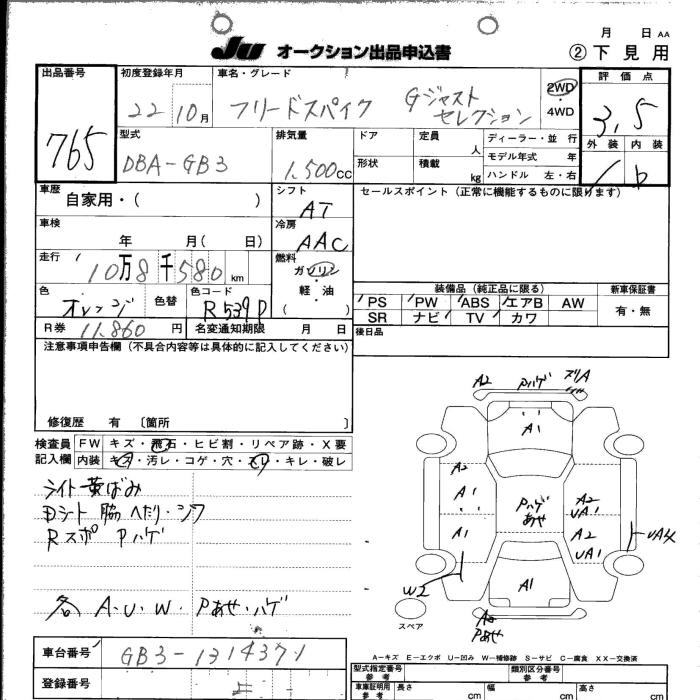 月 日 AA
JU オークション出品申込書 ② 下見用
出品番号 765
初度登録年月 22 10月
車名・グレード フリードスパイク Gジャスト セレクション
2WD・4WD
評価点 3.5
外装 内装
1 b
型式 DBA-GB3
排気量 1,500cc
ドア 定員 人
形状 積載 kg
ディーラー・並行
モデル年式 年
ハンドル 左・右
車歴 自家用・( )
シフト AT
セールスポイント(正常に機能するものに限ります)
車検 年 月( 日)
冷房 AAC
走行 10万8千580km
燃料 ガソリン・軽・油 ( )
色 オレンジ 色替 色コード R539P
装備品(純正品に限る)
PS PW ABS エアB AW
SR ナビ TV カワ
新車保証書 有・無
R券 11,860円 名変通知期限 月 日
後日品
注意事項申告欄(不具合内容等は具体的に記入してください)
修復歴 有 〔箇所 〕
検査員記入欄
FW キズ・飛石・ヒビ割・リペア跡・X要
内装 キズ・汚レ・コゲ・穴・スリ・キレ・破レ
ライト黄ばみ
Dシート 脇 へたり・シワ
Rスポ Pハゲ
各 A・U・W・Pあせ・ハゲ
A2 Pハゲ ズリA
A1
A2
A1
Pハゲ あせ
A2
UA1
A1
A2
UA1
UA4
W2
A1
スペア
A2
Pあせ
A-キズ E-エクボ U-凹み W-補修跡 S-サビ C-腐食 XX-交換済
車台番号 GB3-1314371
登録番号
型式指定番号 参考
類別区分番号 参考
車庫証明用 参考 長さ cm 幅 cm 高さ cm